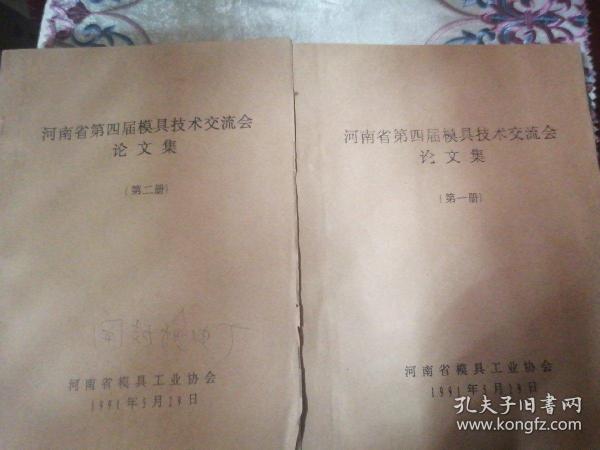 河南省第四届模具技术交流会
论文集
(第二册)
河南省模具工业协会
1991年5月29日
河南省第四届模具技术交流会
论文集
(第一册)
河南省模具工业协会
1991年5月29日
孔夫子旧书网
www.kongfz.com